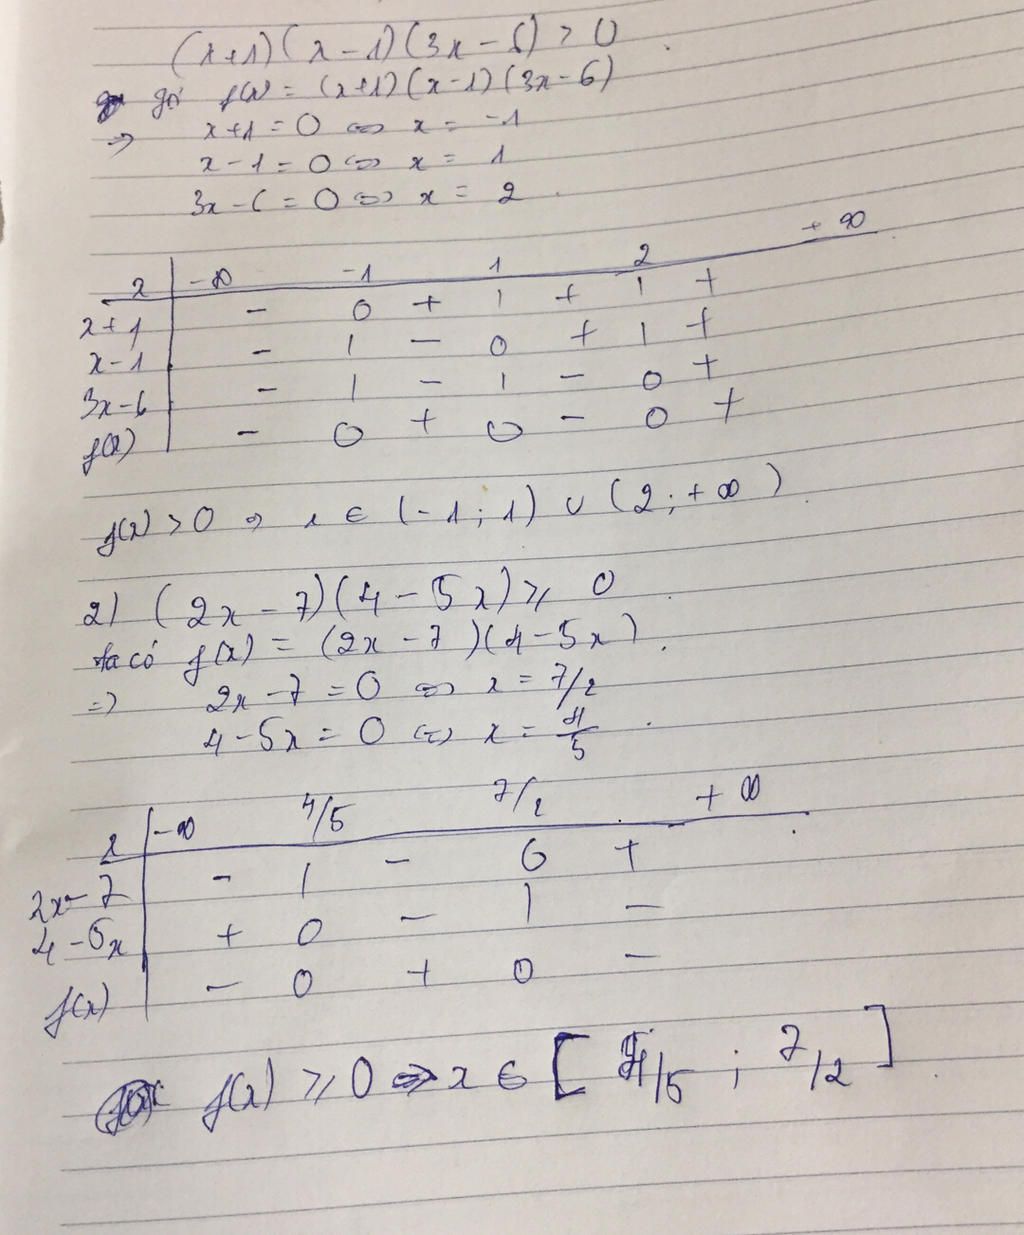 (x+1)(x-1)(3x-6) > 0
gọi f(x) = (x+1)(x-1)(3x-6)
=> x+1 = 0 <=> x = -1
x-1 = 0 <=> x = 1
3x-6 = 0 <=> x = 2
x | -∞ -1 1 2 +∞
x+1 | - 0 + | + | +
x-1 | - | - 0 + | +
3x-6 | - | - | - 0 +
f(x) | - 0 + 0 - 0 +
f(x) > 0 => x ∈ (-1; 1) ∪ (2; +∞)
2) (2x-7)(4-5x) ≥ 0
ta có f(x) = (2x-7)(4-5x).
=> 2x-7 = 0 <=> x = 7/2
4-5x = 0 <=> x = 4/5
x | -∞ 4/5 7/2 +∞
2x-7 | - | - 0 +
4-5x | + 0 - | -
f(x) | - 0 + 0 -
f(x) ≥ 0 <=> x ∈ [4/5; 7/2]